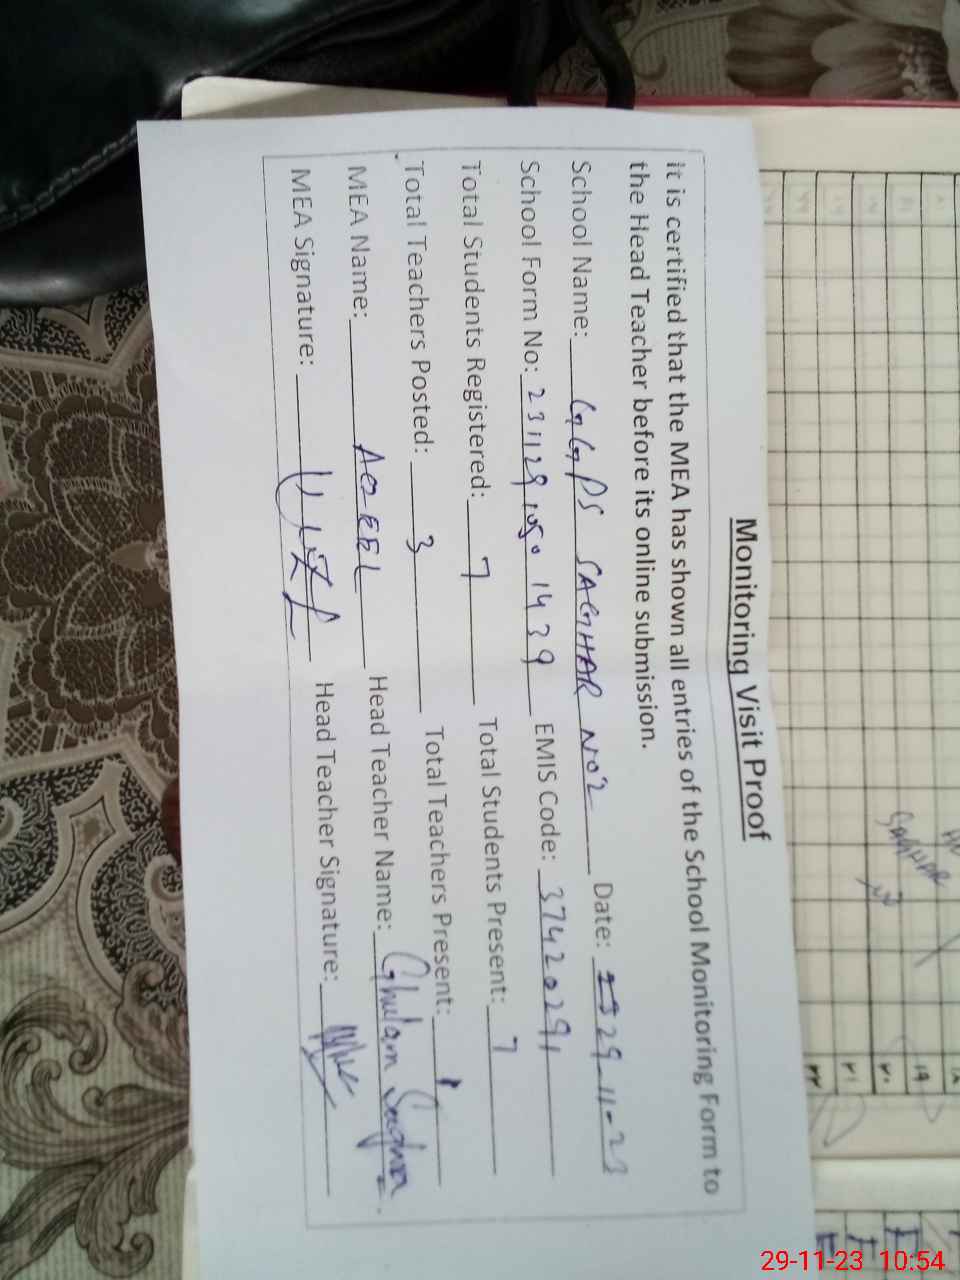 Monitoring Visit Proof
It is certified that the MEA has shown all entries of the School Monitoring Form to
the Head Teacher before its online submission.
School Name: GGPS SAGHAR NO2 Date: 29-11-23
School Form No: 231129 1050 1439 EMIS Code: 37420291
Total Students Registered: 7 Total Students Present: 7
Total Teachers Posted: 3 Total Teachers Present: 1
MEA Name: Head Teacher Name: Ghulam Sughra
MEA Signature: Head Teacher Signature:
SAGHAR
29-11-23 10:54